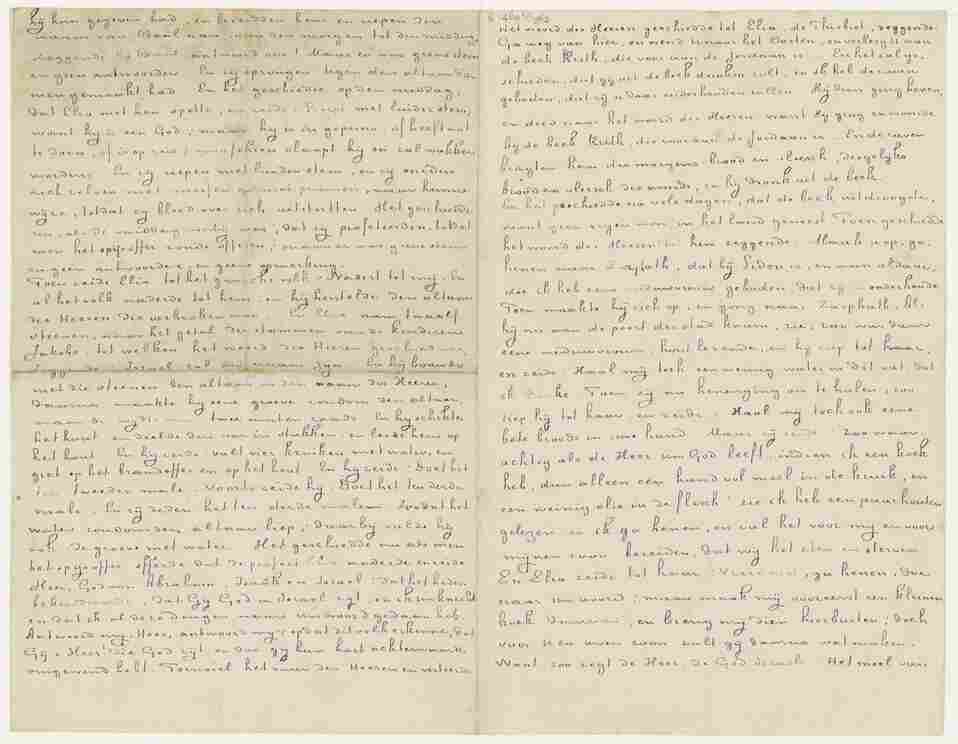 hij hun gegeven had, en bereidden hem en riepen den
naam van Baäl aan, van den morgen tot den middag,
zeggende O, Baäl antwoord ons! Maar er was geene stem
en geen antwoorder. En zij sprongen tegen den altaar dien
men gemaakt had En het geschiedde op den middag,
dat Elia met hen spotte, en zeide: Roept met luider stem,
want hij is een God; maar hij is in gepeins, of heeft wat
te doen, of is op reis; misschien slaapt hij en zal wakker
worden. En zij riepen met luider stem, en zij sneden
zich zelven met messen en met priemen, naar hunne
wijze, totdat zij bloed over zich uitstortten Het geschiedde
nu, als de middag voorbij was, dat zij profeteerden, totdat
men het spijsoffer zoude offeren; maar er was geene stem
en geen antwoorder, en geene opmerking.
Toen zeide Elia tot het gansche volk: Nadert tot mij. En
al het volk naderde tot hem, en hij herstelde den altaar
des Heeren die verbroken was. En Elia nam twaalf
steenen, naar het getal der stammen van de kinderen
Jakobs, tot welken het woord des Heeren geschied was,
zeggende Israel zal uw naam zijn En hij bouwde
met die steenen den altaar in den naam des Heeren,
daarna maakte hij eene groeve rondom den altaar,
naar de wijdte van twee maten zaads En hij schikte
het hout en deelde den var in stukken en leide hem op
het hout En hij zeide vult vier kruiken met water, en
giet op het brandoffer en op het hout En hij zeide: Doet het
ten tweeden male. Voorts zeide hij, Doet het ten derde
male. En zij deden het ten derde male zoodat het
water rondom den altaar liep, daarbij vulde hij
ook de groeve met water. Het geschiedde nu als men
het spijsoffer offerde dat de profeet Elia naderde en zeide
Heer, God van Abraham, Isaäk en Israel: dat het heden
bekend worde, dat Gij God in Israel zijt, en ik uw knecht
en dat ik al deze dingen naar uw woord gedaan heb.
Antwoord mij, Heer, antwoord mij; opdat dit volk erkenne, dat
Gij o Heer! die God zijt en dat gij hun hart achterwaarts
omgewend hebt. Toen viel het vuur des Heeren en verteerde
Het woord des Heeren geschiedde tot Elia, de Thisbiet, zeggende
Ga weg van hier, en wend u naar het Oosten, en verberg u aan
de beek Krith, die voor aan de Jordaan is En het zal ge-
schieden, dat gij uit de beek drinken zult, en ik heb de raven
geboden, dat zij u daar onderhouden zullen Hij dan ging henen,
en deed naar het woord des Heeren want hij ging en woonde
bij de beek Krith, die voor aan de Jordaan is. En de raven
bragten hem des morgens brood en vleesch, desgelijks
brood en vleesch des avonds, en hij dronk uit de beek.
En het geschiedde na vele dagen, dat de beek uitdroogde,
want geen regen was, in het land geweest Toen geschiedde
het woord des Heeren tot hem zeggende: Maak u op, ga
henen naar Zarphath, dat bij Sidon is, en woon aldaar,
zie ik heb eene weduwvrouw geboden, dat zij u onderhoude
Toen maakte hij zich op, en ging naar Zarphath. Als
hij nu aan de poort der stad kwam, zie, zoo was daar
eene weduwvrouw, hout lezende, en hij riep tot haar,
en zeide Haal mij toch een weinig water in dit vat dat
ik drinke Toen zij nu henenging om te halen, zoo
riep hij tot haar en zeide: Haal mij toch ook eene
bete broods in uwe hand Maar zij zeide: Zoo waar-
achtig als de Heer uw God leeft, indien ik een koek
heb, dan alleen een hand vol meel in de kruik, en
een weinig olie in de flesch! zie ik heb een paar houten
gelezen en ik ga henen, en zal het voor mij en voor
mijnen zoon bereiden, dat wij het eten en sterven
En Elia zeide tot haar: Vrees niet, ga henen, doe
naar uw woord: maar maak mij vooreerst een kleinen
koek daarvan, en breng mij dien hierbuiten; doch
voor u en uwen zoon zult gij daarna wat maken.
Want zoo zegt de Heer de God Israels Het meel van